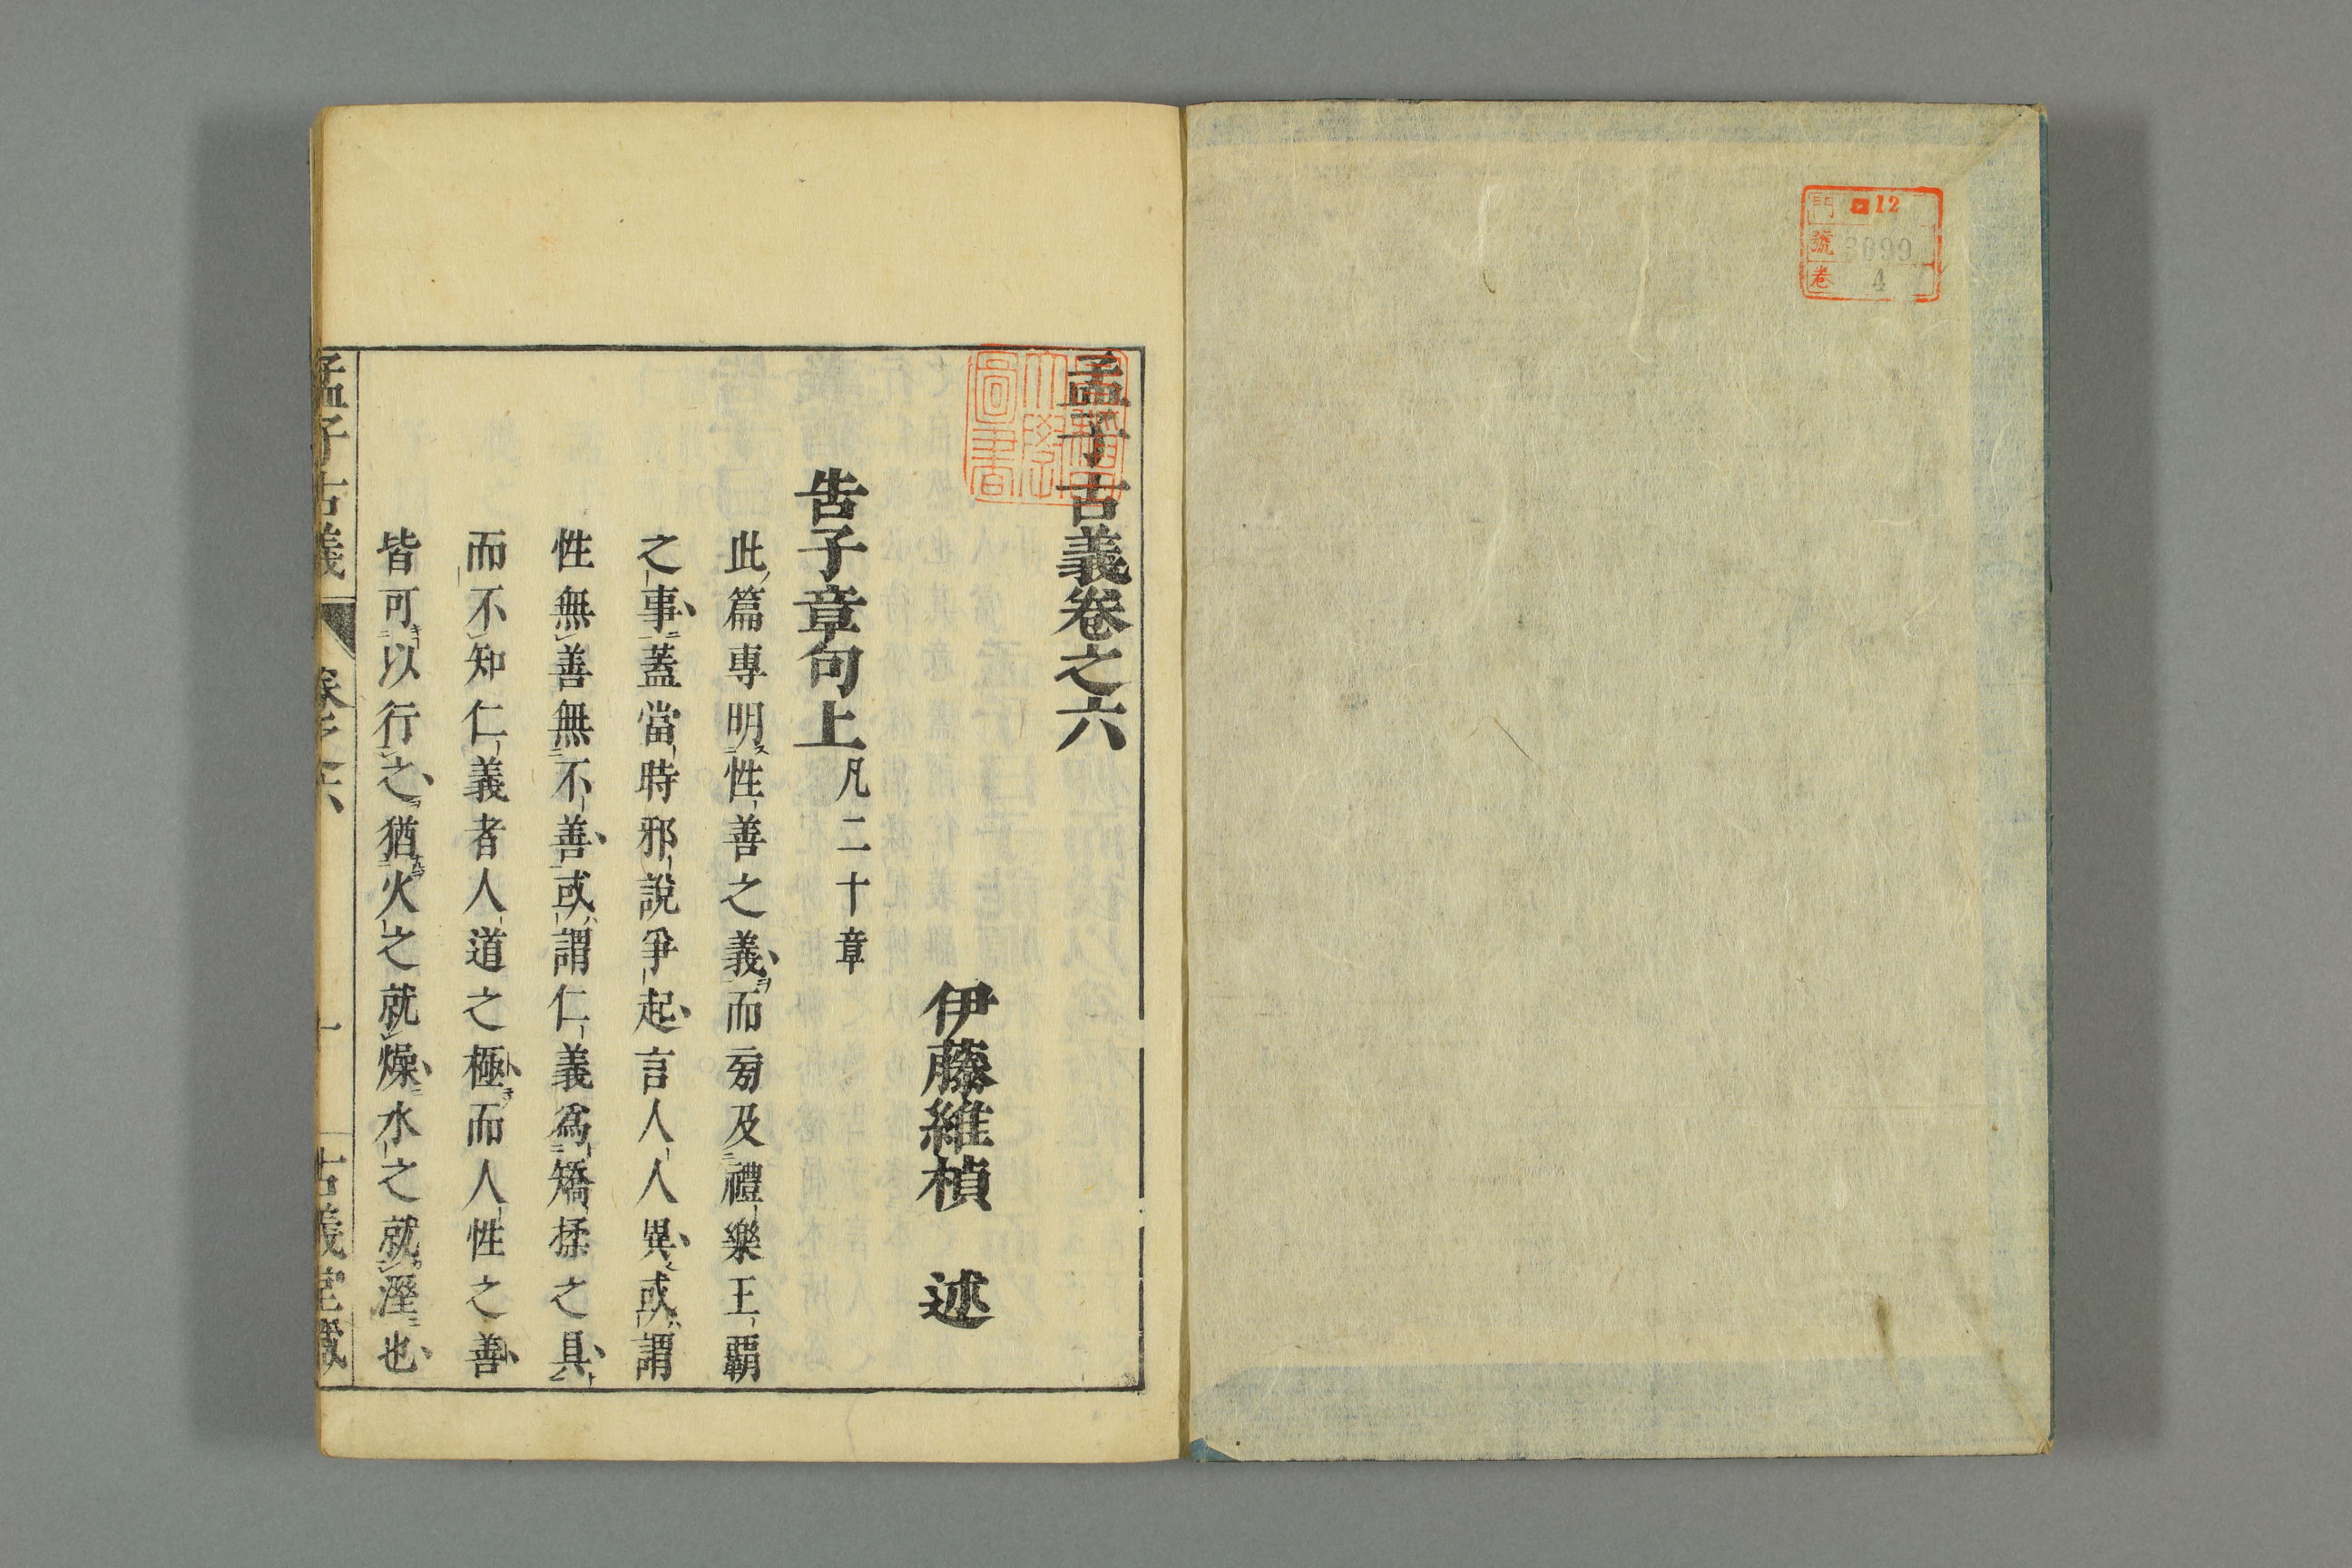 門 ロ12
號 3099
卷 4
孟子古義卷之六
早稻田大學圖書
伊藤維楨 述
告子章句上凡二十章
此篇專明性善之義而旁及禮樂王霸
之事蓋當時邪說爭起言人人異或謂
性無善無不善或謂仁義爲矯揉之具
而不知仁義者人道之極而人性之善
皆可以行之猶火之就燥水之就溼也
孟子古義 卷之六 一 古義堂藏